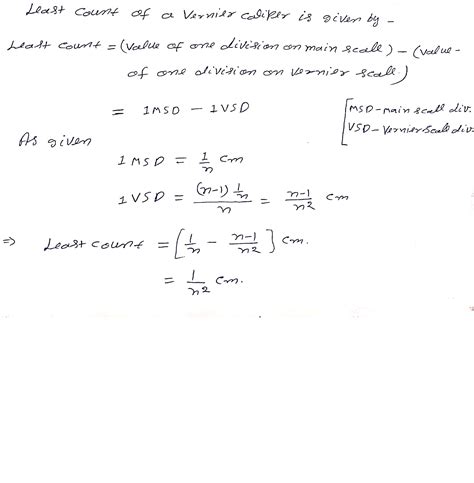 Least count of a Vernier caliper is given by -
Least count = (value of one division on main scale) - (value-
of one division on vernier scale)
= 1MSD - 1VSD
[MSD-main scale div.
VSD-Vernier scale div.
As given
1MSD = 1/n cm
1VSD = (n-1) 1/n / n = n-1/n² cm
⇒ Least count = [1/n - n-1/n²] cm.
= 1/n² cm.